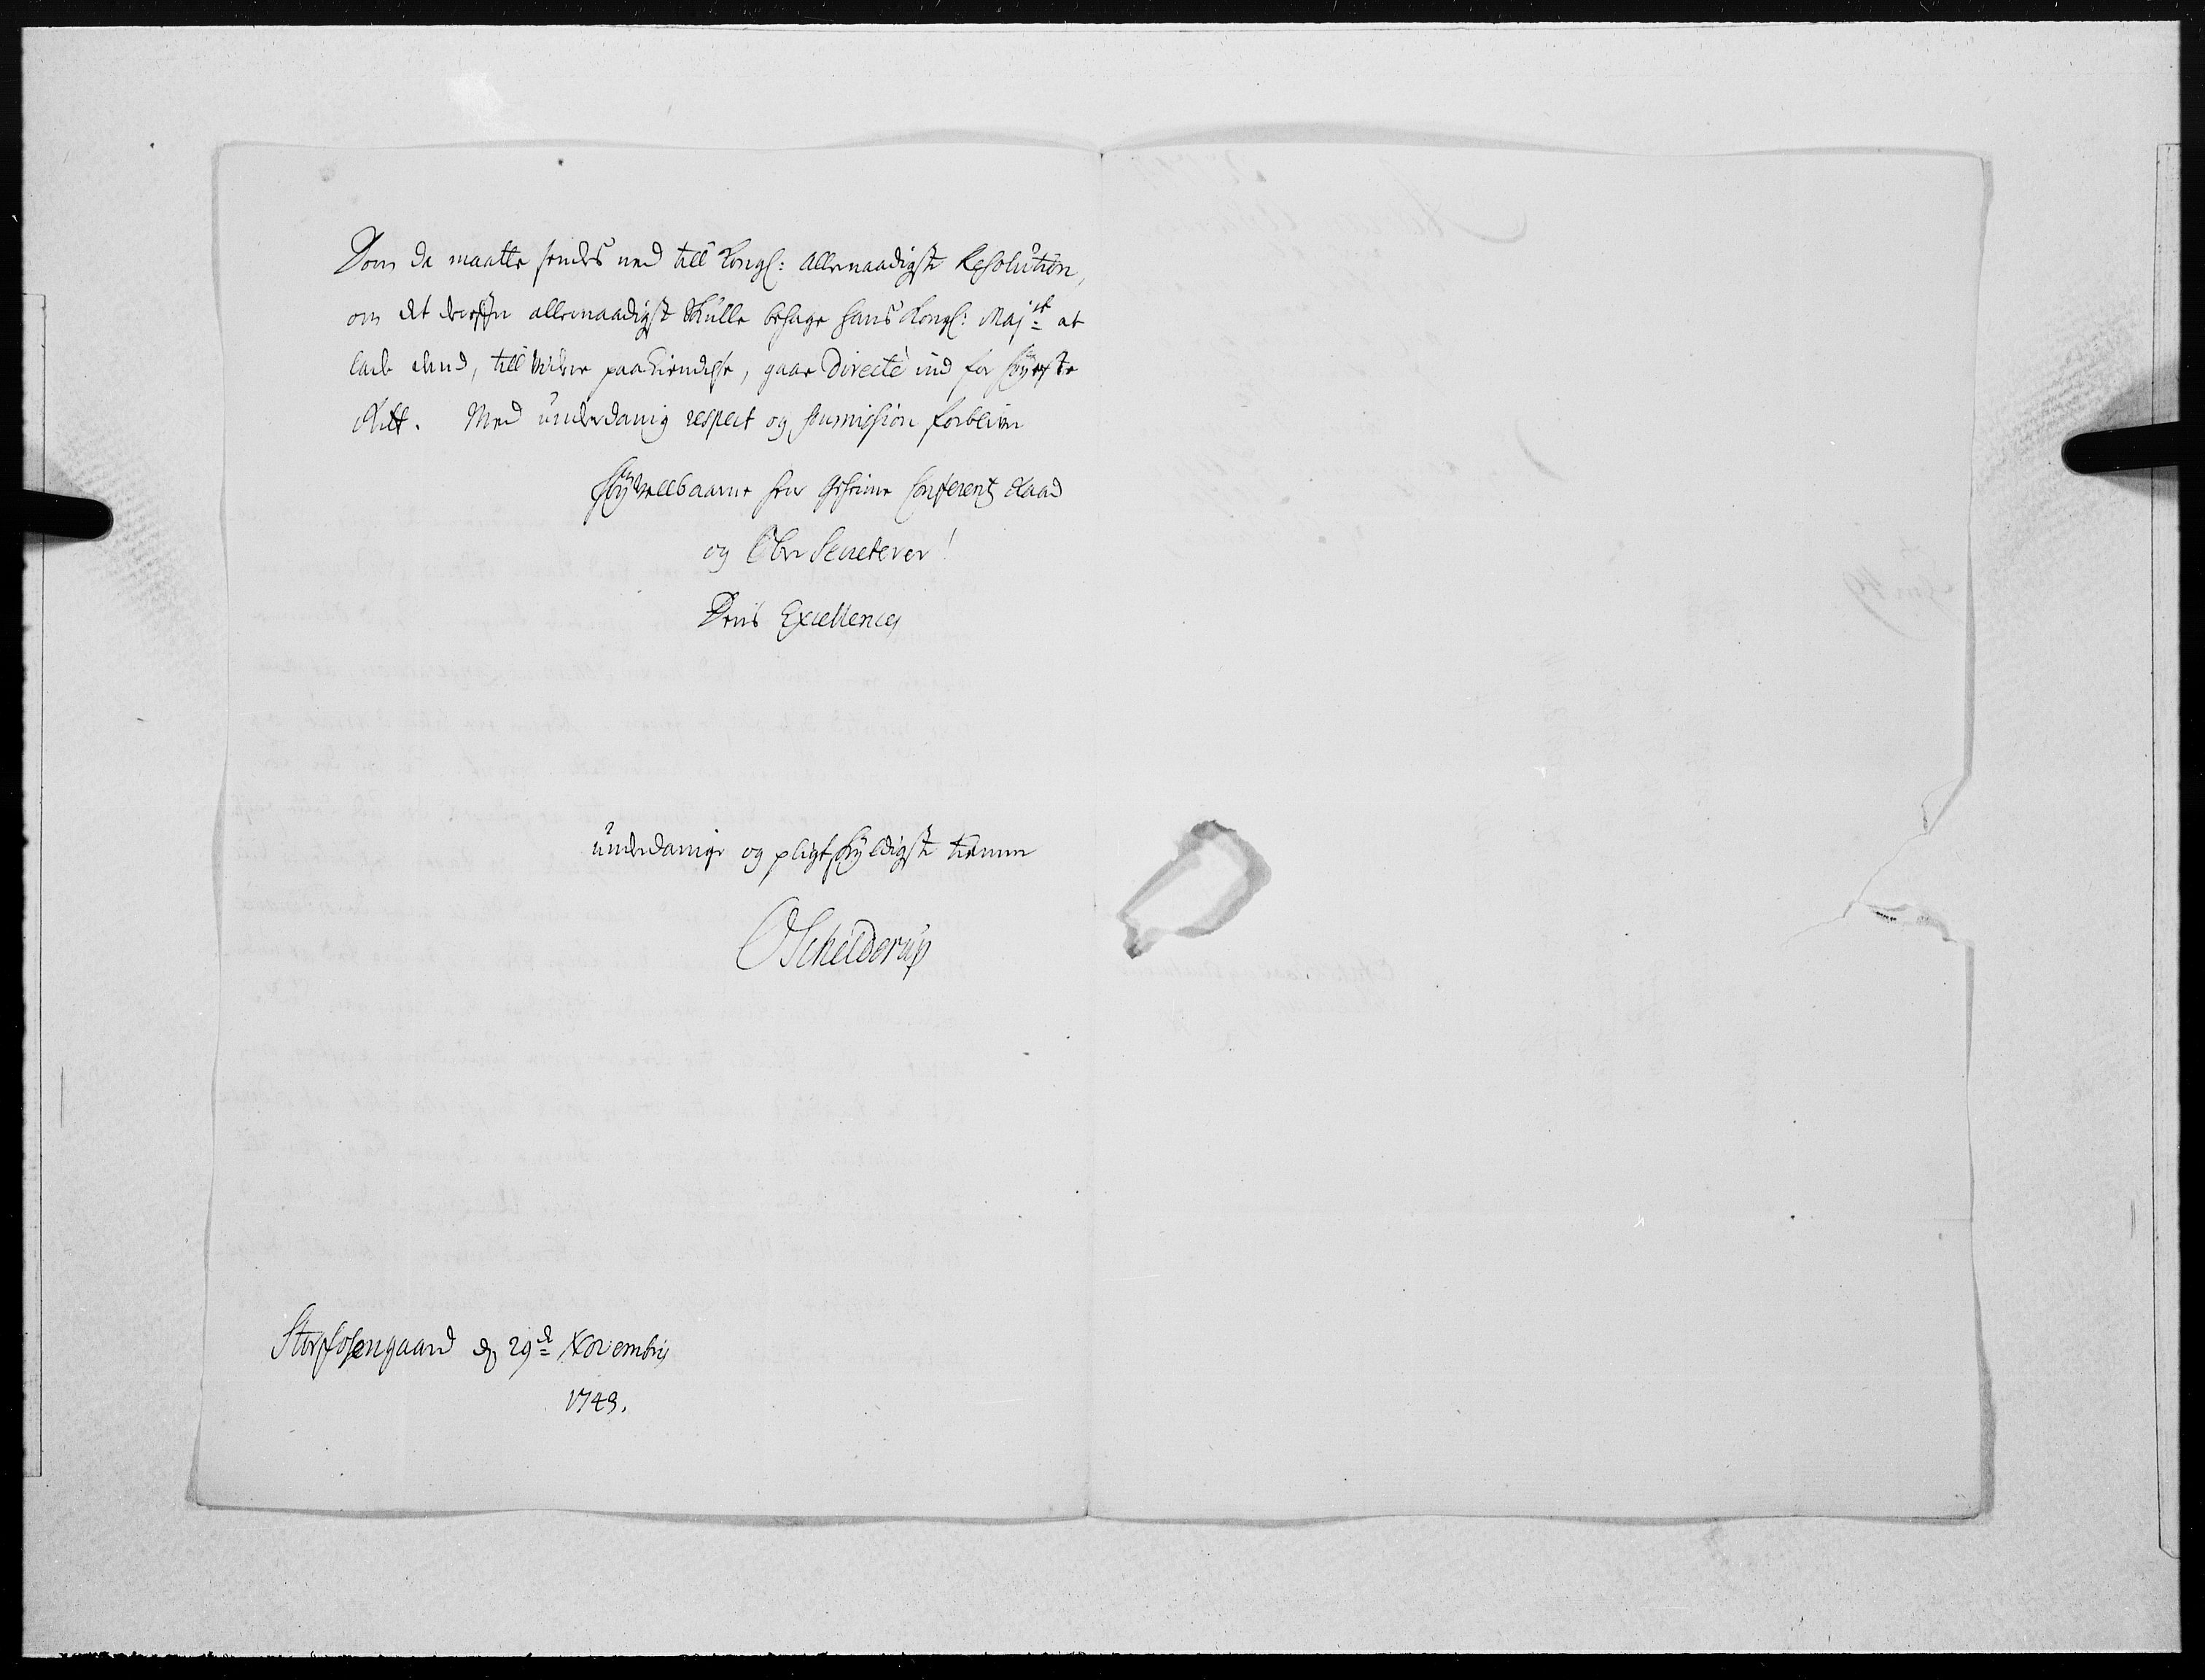 Dom da maatte sendes ned till Kongl: allernaadigste Resolution,
om det dereffter allernaadigst skulle behage hans Kongl: Maj:st at
lade dend, till videre paakiendelse, gaae Directè ind for høyeste
Rett. Med underdanig respect og soumission forbliver
Høyvelbaarne Herr Geheime Conferentz Raad
og Ober Secreterer!
Deris Excellences
underdanige og pligtskyldigste tienere
OSchelderup
Storfosengaard d 29de Novembris
1749.